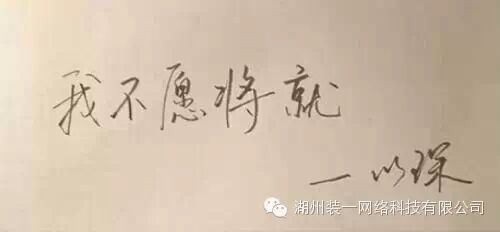 我不愿将就
一以琛
湖州装一网络科技有限公司